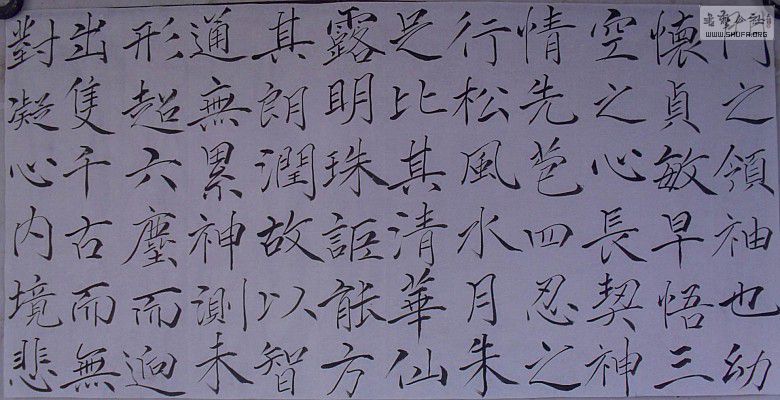 門之領袖也幼
懷貞敏早悟三
空之心長契神
情先苞四忍之
行松風水月朱
足比其清華仙
露明珠詎能方
其朗潤故以智
通無累神測未
形超六塵而迥
出隻千古而無
對凝心內境悲
WWW.SHUFA.ORG